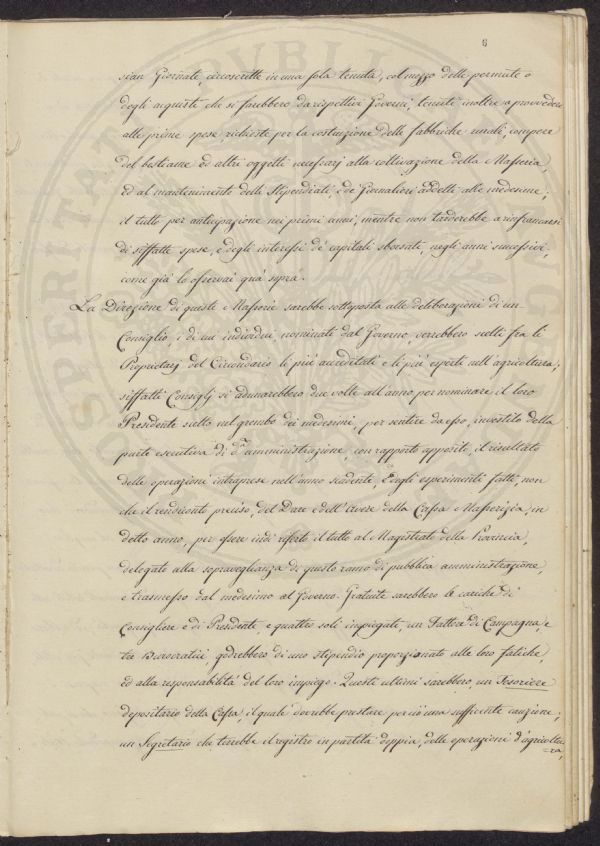 6
sian Giornate, circoscritte in una sola tenuta, col mezzo delle permute o
degli acquisti che si farebbero da rispettivi Governi, tenuti inoltre a provvedere
alle prime spese richieste per la costruzione delle fabbriche rurali, compere
del bestiame ed altri oggetti necessarj alla coltivazione della Masseria,
ed al mantenimento delli Stipendiati, e de' Giornalieri addetti alle medesime;
il tutto per anticipazione nei primi anni, mentre non tarderebbe a rinfrancarsi
di siffatte spese, e degli interessi de' capitali sborsati, negli anni successivi,
come già lo osservai quà sopra.
La Direzione di queste Masserie sarebbe sottoposta alle deliberazioni di un
Consiglio, i di cui individui, nominati dal Governo, verrebbero scelti fra li
Proprietarj del Circondario li più accreditati e li più esperti nell'agricoltura;
siffatti Consiglj si adunarebbero due volte all'anno per nominare il loro
Presidente scelto nel grembo dei medesimi, per sentire da esso, investito della
parte esecutiva di d.ᵃ amministrazione, con rapporto apposito, il risultato
delle operazioni intraprese nell'anno scadente, e degli esperimenti fatti, non
che il rendiconto preciso, del Dare e dell'Avere della Cassa Masserizia, in
detto anno, per essere indi riferto il tutto al Magistrato della Provincia,
delegato alla sopraveglianza di questo ramo di pubblica amministrazione,
e trasmesso dal medesimo al Governo. Gratuite sarebbero le cariche di
Consigliere e di Presidente, e quattro soli impiegati, un Fattore di Campagna, e
tre Burocratici, godrebbero di uno stipendio proporzionato alle loro fatiche,
ed alla responsabilità del loro impiego. Questi ultimi sarebbero, un Tesoriere
depositario della Cassa, il quale dovrebbe prestare per ciò una sufficente cauzione;
un Segretario che terrebbe il registro in partita doppia, delle operazioni d'agricoltu-
ra,